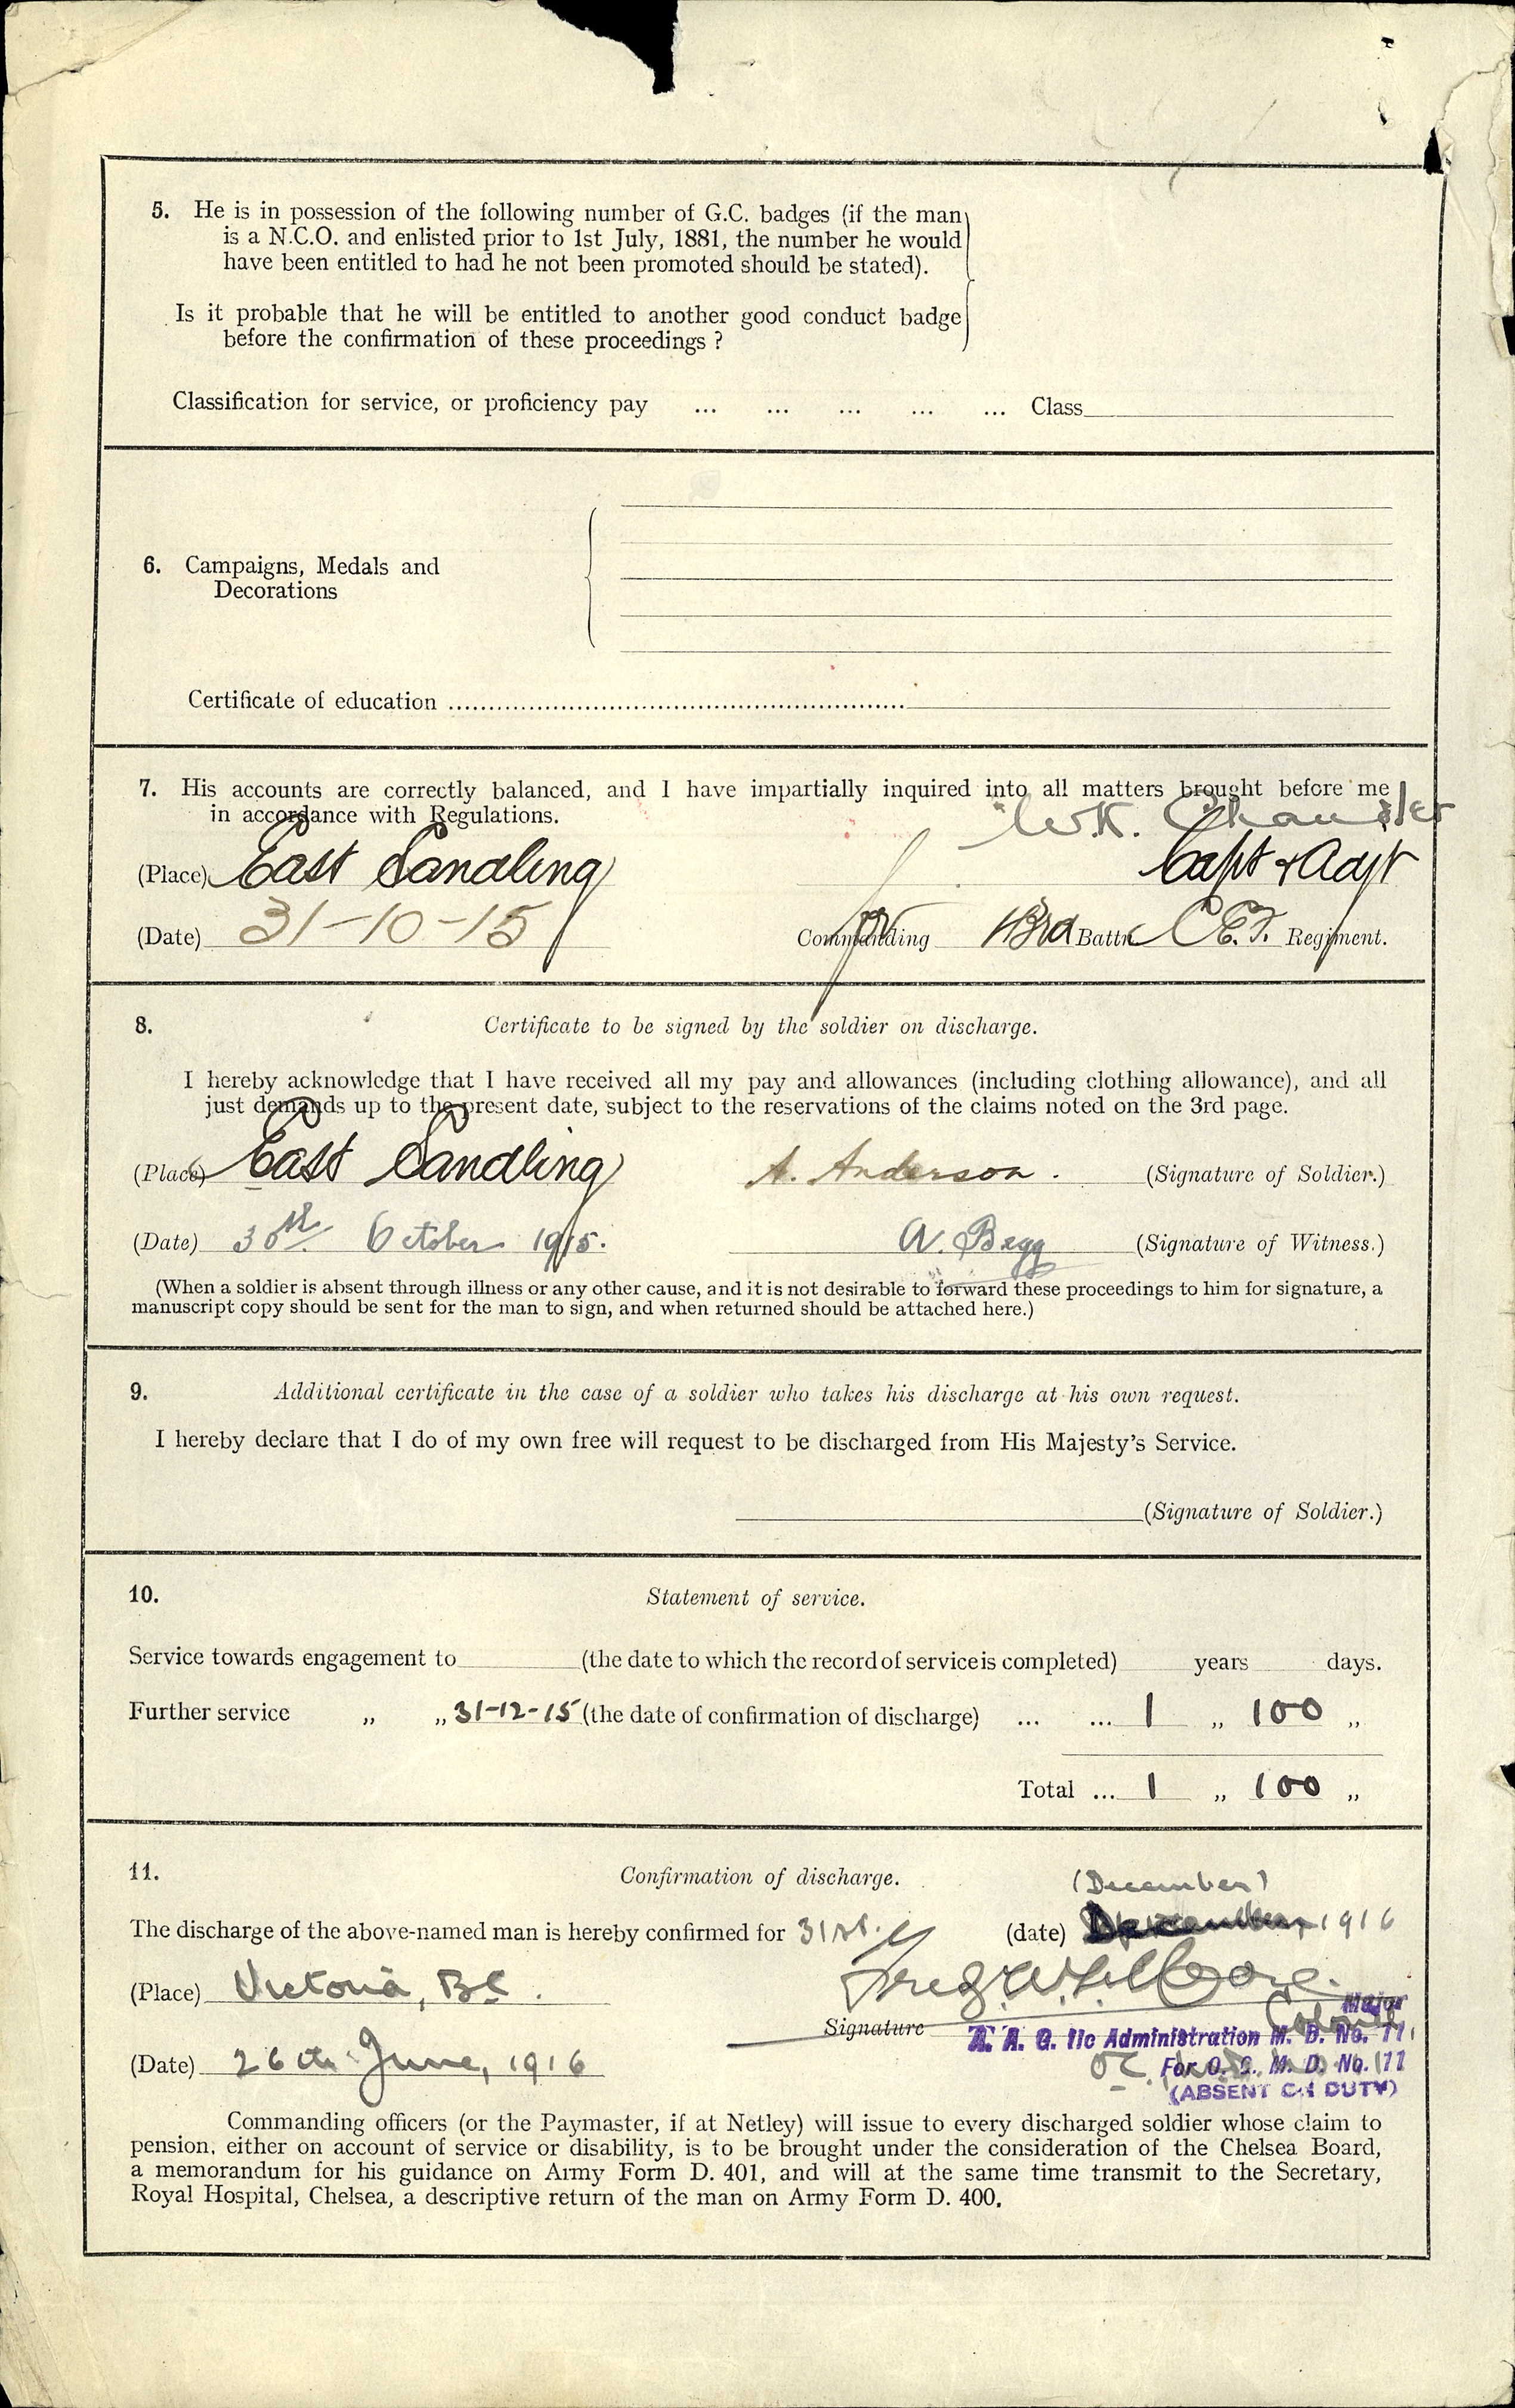 5. He is in possession of the following number of G.C. badges (if the man
is a N.C.O. and enlisted prior to 1st July, 1881, the number he would
have been entitled to had he not been promoted should be stated).
Is it probable that he will be entitled to another good conduct badge
before the confirmation of these proceedings ?
Classification for service, or proficiency pay ... ... ... ... ... Class
6. Campaigns, Medals and
Decorations
Certificate of education
7. His accounts are correctly balanced, and I have impartially inquired into all matters brought before me
in accordance with Regulations.
W.K. Chandler
(Place) East Sandling Capt & Adjt
(Date) 31-10-15 for Commanding Battn C.E.F. Regiment.
8. Certificate to be signed by the soldier on discharge.
I hereby acknowledge that I have received all my pay and allowances (including clothing allowance), and all
just demands up to the present date, subject to the reservations of the claims noted on the 3rd page.
(Place) East Sandling A. Anderson. (Signature of Soldier.)
(Date) 30th October 1915. A. Begg (Signature of Witness.)
(When a soldier is absent through illness or any other cause, and it is not desirable to forward these proceedings to him for signature, a
manuscript copy should be sent for the man to sign, and when returned should be attached here.)
9. Additional certificate in the case of a soldier who takes his discharge at his own request.
I hereby declare that I do of my own free will request to be discharged from His Majesty's Service.
(Signature of Soldier.)
10. Statement of service.
Service towards engagement to (the date to which the record of service is completed) years days.
Further service „ „ 31-12-15 (the date of confirmation of discharge) ... ... 1 „ 100 „
Total ... 1 „ 100 „
11. Confirmation of discharge.
(December)
The discharge of the above-named man is hereby confirmed for 31st. (date) 1916
(Place) Victoria, BC.
Major
Signature Colonel
A. A. G. i/c Administration M. D. No. 11,
(Date) 26th June, 1916 For O. C. M. D. No. 11
(ABSENT ON DUTY)
Commanding officers (or the Paymaster, if at Netley) will issue to every discharged soldier whose claim to
pension, either on account of service or disability, is to be brought under the consideration of the Chelsea Board,
a memorandum for his guidance on Army Form D. 401, and will at the same time transmit to the Secretary,
Royal Hospital, Chelsea, a descriptive return of the man on Army Form D. 400.